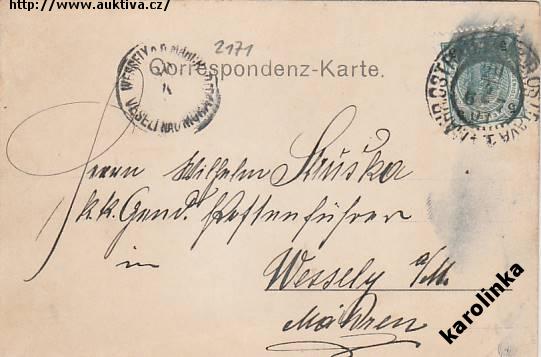 http://www.auktiva.cz/
2171
Correspondenz-Karte.
WESSELY A.D. MARCH
VESELÍ NAD MORAVOU
MÄHR. OSTRAU
OSTRAVA
Herrn Wilhelm Suška
k.k. Gend. Postenführer
in
Wessely a/M.
Mähren
karolinka